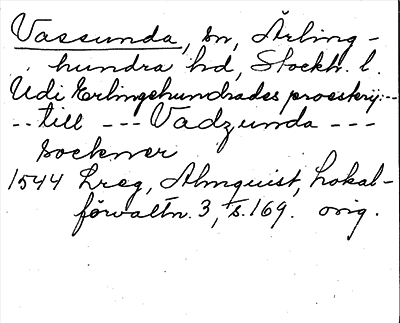 Vassunda, sn, Ärling-
hundra hd, Stockh. l.
Udi Erlingehundrades proeskrij: --
-- till --- Vadzunda ---
sockner
1544 Lreg, Almquist, Lokal-
förvaltn. 3, s. 169. orig.